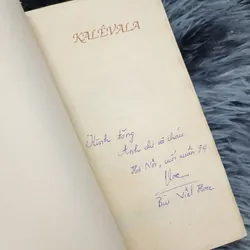 KALÊVALA
Kính tặng
Anh chị và cháu
Hà Nội, cuối xuân 94
Bùi Việt Hoa